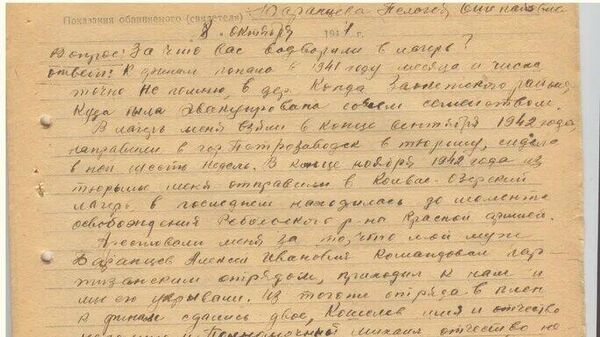 Показания обвиняемого (свидетеля) Баранцева Пелагея
8. октября 194 г.
Вопрос: За что вас водворили в лагерь?
ответ: К финам попала в 1941 году месяца и числа
точно не помню, в дер. Конда Заонежского района
куда была эвакуирована совсем семейством.
В лагерь меня взяли в конце сентября 1942 года
направили в гор Петрозаводск в тюрьму, сидела
в ней шесть недель. В конце ноября 1942 года из
тюрьмы меня отправили в Озерский
лагерь в последнем находилась до момента
освобождения Ребольского р-на Красной армией.
Арестовали меня за то, что мой муж
Баранцев Алексей Иванович командовал пар
тизанским отрядом, приходил к нам и
мы его укрывали. Из того отряда в плен
к финам сдались двое, Кошелев имя и отчество
и михаил отчество не